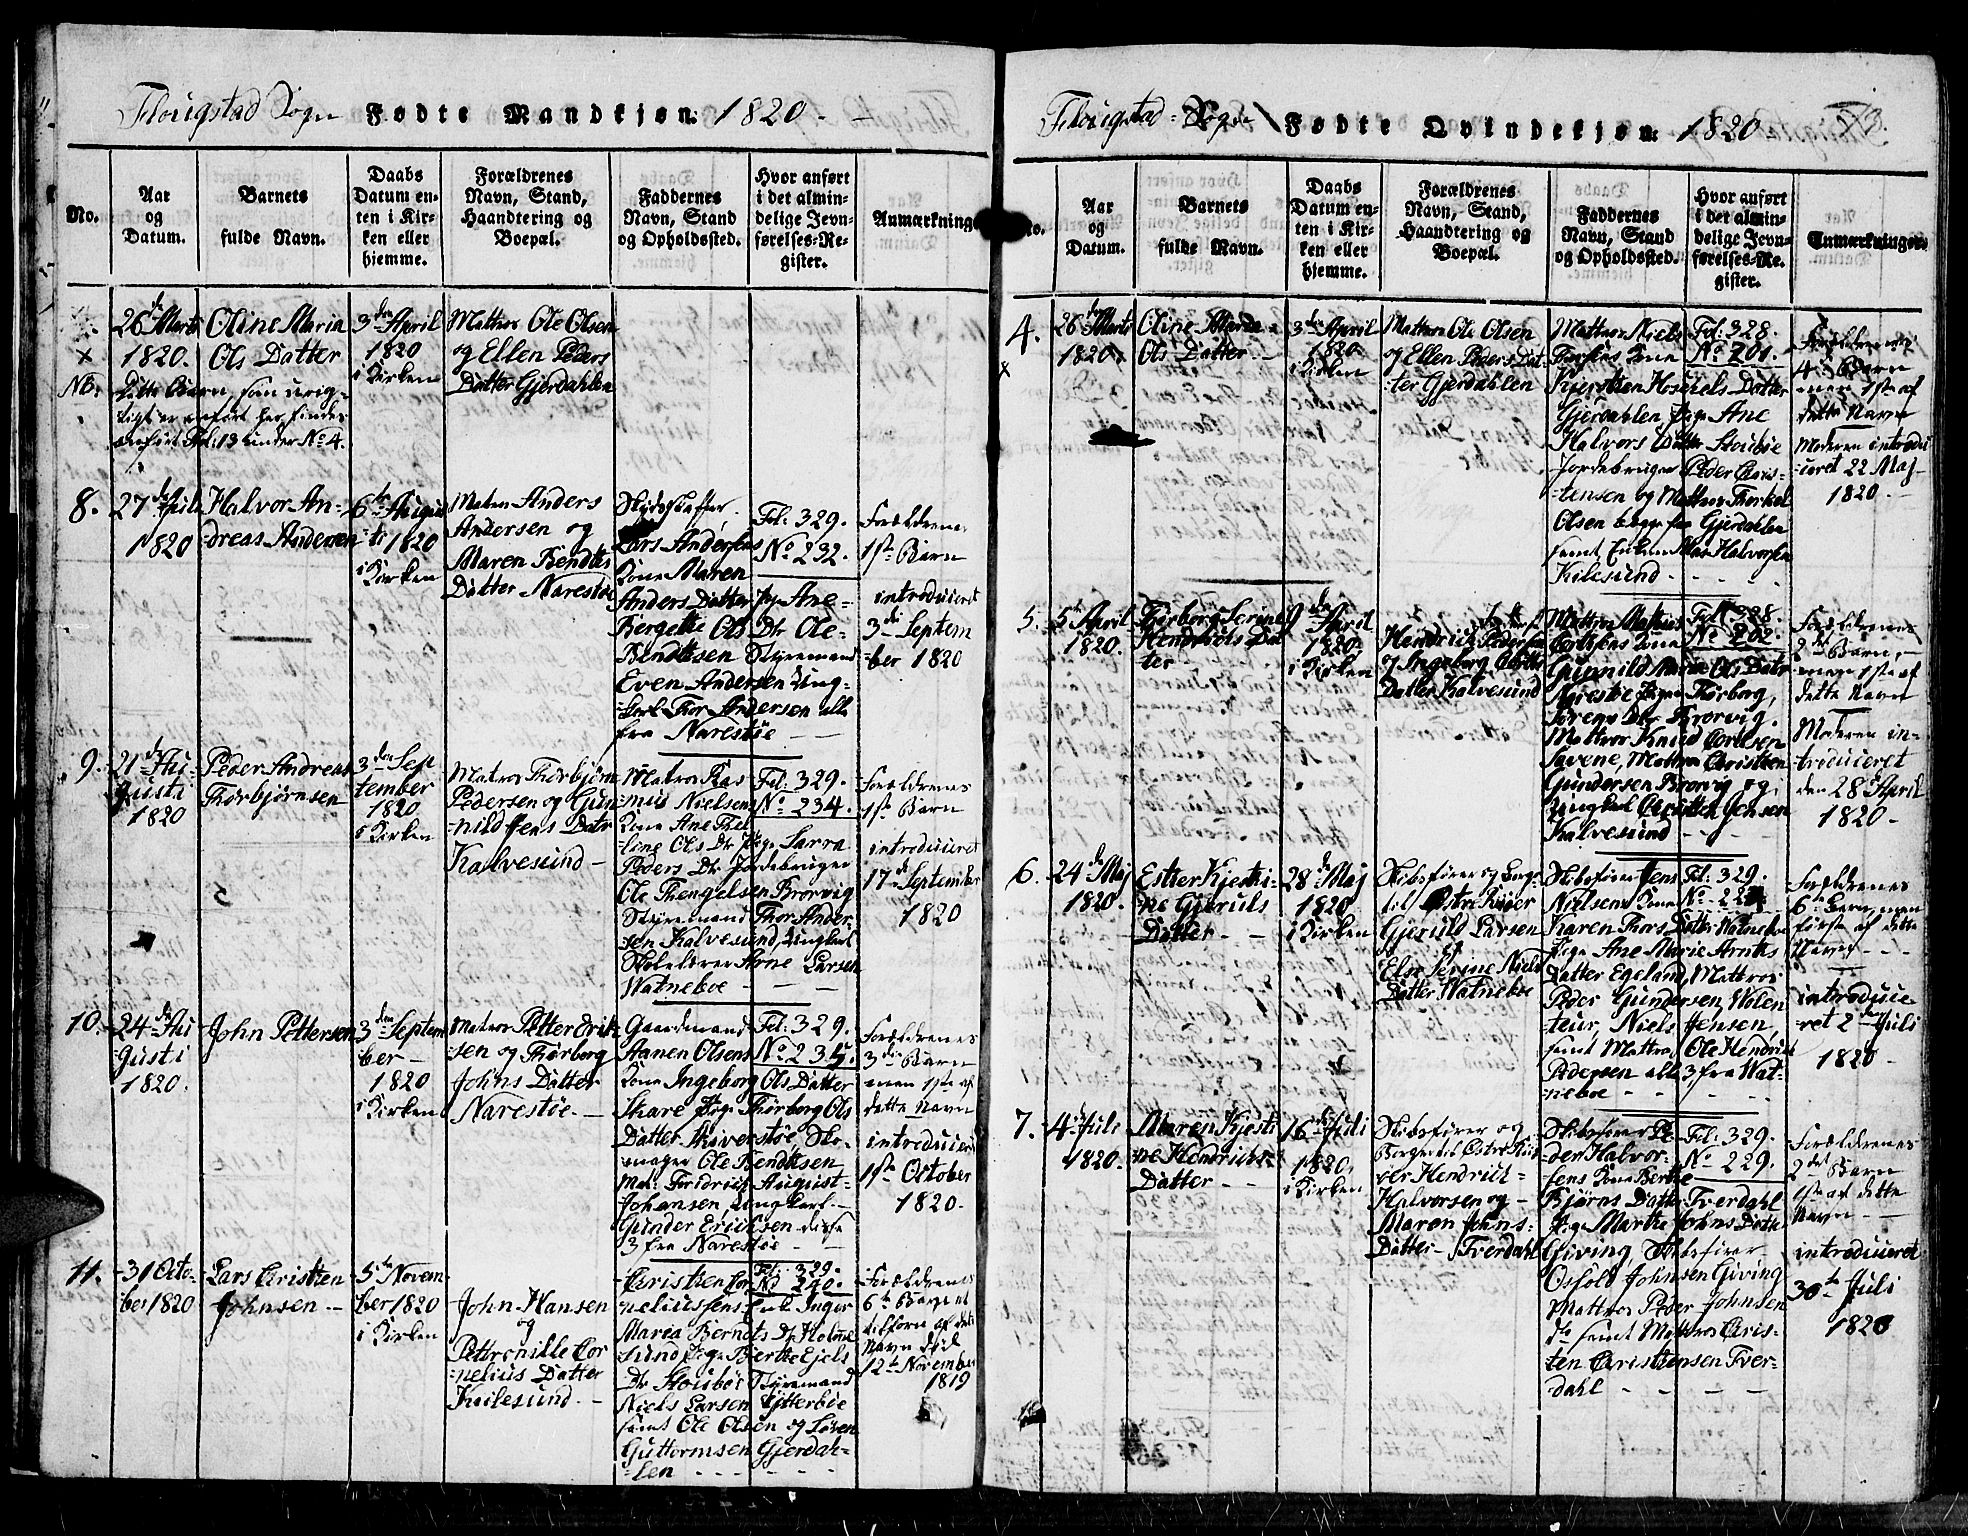 Flougstad Sogn Fødte Mandkjøn: 1820.
No.
Aar
og
Datum.
Barnets
fulde Navn.
Daabs
Datum en-
ten i Kir-
ken eller
hjemme.
Forældrenes
Navn, Stand,
Haandtering og
Boepæl.
Faddernes
Navn, Stand
og Opholdssted.
Hvor anført
i det almin-
delige Jevn-
førelses-Re-
gister.
Anmærkninger
26de Marts
1820.
Oline Maria
Ols Datter
3den April
1820
i Kirken
Mattros Ole Olsen
og Ellen Peders
Datter Gjerdahlen
NB:
Dette Barn, som urig-
tigt er anført her, findes
anført Fol: 13 under No 4.
8.
27de Juli
1820
Halvor An-
dreas Andersen
6te Augus
ti 1820
i Kirken
Matros Anders
Andersen og
Maren Bendtes
Datter Narestøe
Skydsskaffer
Lars Andersens
Kone Maren
Anders Datter Pige Ane
Bergette Ols Dtr Ole
Bendtesen Styremand
Even Andersen Ung-
karl Thor Andersen alle
fra Narestøe
Fol: 329.
No 232.
Forældrenes
1ste Barn
introduceret
3die Septem
ber 1820
9.
21de Au
gusti
1820
Peder Andreas
Thorbjørnsen
3den Sept
tember
1820
i Kirken
Matros Thorbjørn
Pedersen og Gun
nild Jens Datter
Kalvesund
Matros Ras
mus Nielsens
Kone Ane Thel
line Ols Dtr Pige Sarra
Peders Dtr Jordebruger
Ole Thengelsen Brørvig
Styremand Thor Ander-
sen Kalvesund, Ungkarl
Skolelærer Arne Larsen
Watneboe
Fol: 329.
No 234.
Forældrenes
1ste Barn
introduceret
17de September
1820
10.
24de Au
gusti
1820.
John Pettersen
3den Septem
ber
1820
i Kirken
Matros Petter Erik-
sen og Thorborg
Johns Datter
Narestøe.
Gaardmand
Aanen Olsens
Kone Ingeborg Ols Datter
Skare Pige Thorborg Ols
Datter Skiverstøe, Sko-
mager Ole Bendtesen
Mat: Fredrich August
Johansen, Ungkarl
Gunder Ericksen disse
3 fra Narestøe
Fol: 329.
No 235.
Forældrenes
3die Barn
men 1ste af
dette Navn
introduceret
1ste October
1820.
11.
31 Octo-
ber 1820
Lars Cristen
Johnsen
5te Novem
ber 1820
i Kirken
John Hansen
og
Petternille Cor
nelius Datter
Kilesund.
Cristen Cor
neliussens Enk. Inger
Maria Bernets Dtr Holme
sund Pige Berthe Ejels
Dtr Stoisbøe Styremand
Niels Larsen Ytterbøe
samt Ole Olsen og Søren
Guttormsen Gjerdah-
len
Fol: 329.
No 240.
Forældrenes
6te Barn et
tilforn af dette
Navn død
12te November
1819
Flougstad Sogn Fødte Qvindekjøn: 1820
13.
No.
Aar
og
Datum.
Barnets
fulde Navn.
Daabs
Datum en-
ten i Kir-
ken eller
hjemme.
Forældrenes
Navn, Stand,
Haandtering og
Boepæl.
Faddernes
Navn, Stand
og Opholdssted.
Hvor anført
i det almin-
delige Jevn-
førelses-Re-
gister.
Anmærkninger.
4.
26de Marts
1820.
Oline Maria
Ols Datter
3die April
1820
i Kirken
Mattros Ole Olsen
og Ellen Peders Dat-
ter Gjerdahlen
Mattros Niels
Kone
Kjerstsen Datter
Gjerdahlen Pige Ane
Halvors Datter Stoisbøe
Jordebruger Peder Cris-
tensen og Mattros Therkel
Olsen begge fra Gjerdahlen
samt Enkem Halvorsen
Kilesund
Fol: 328.
No 201.
Forældrenes
4de Barn
men 1ste af
dette Navn
Moderen introdu
ceret 22 Maj
1820
5.
5te April
1820.
Serine
Hendrichs Dat
ter
9de April
1820.
i Kirken
Hendrich Pedersen
og Ingeborg
Datter Kalvesund
Mattros
Kone
Gunnild Maria Ols Datter
Narestøe Pige Thorborg
Sørens Dtr Brørvig.
Mattros Knud Corlsen
Savene, Mattros Christen
Gundersen Brørvig og
Ungkarl Jensen
Kalvesund
Fol: 328.
No 202.
Forældrenes
2det Barn,
men 1ste af
dette Navn
Moderen in-
troduceret
den 28de April
1820
6.
24de Maj
1820.
Ester Kjesti-
ne Gjeruls
Datter
28de Maj
1820
i Kirken
Skibsfører og Borg-
til Østre Riiser
Gjeruld Larsen
Else Serine Niels
Datter Watneboe
Skibsfører Jens
Nielsens Kone
Karen Thors Datter Watneboe
Pige Ane Marie Arnts
Datter Egeland, Mattros
Peder Gundersen, Wolen
teur, Niels Jensen,
samt Mattros Ole Hendrich
Pedersen alle 3 fra Wat-
neboe
Fol: 329.
Forældrenes
6te Barn, men
første af dette
Navn
introduce
ret 2den Juli
1820
7.
4de Juli
1820.
Maren Kjesti
ne Hendrichs
Datter
16de Juli
1820.
i Kirken
Skibsfører og
Borger til Østre Rii
ser Hendrich
Halvorsen og
Maren Johns
Datter Tverdahl
Skibsfører Pe
der Halvor-
sens Kone Berthe
Bjørns Datter Tverdahl
Pige Marthe Johns Datter
Giving Skibsfører
Osfold Johnsen Giving
Mattros Peder Johnsen
do samt Mattros Cris-
ten Cristensen Tver-
dahl
Fol: 329.
No 229.
Forældrenes
2det Barn
1ste af dette
Navn
introduceret
30te Juli
1820